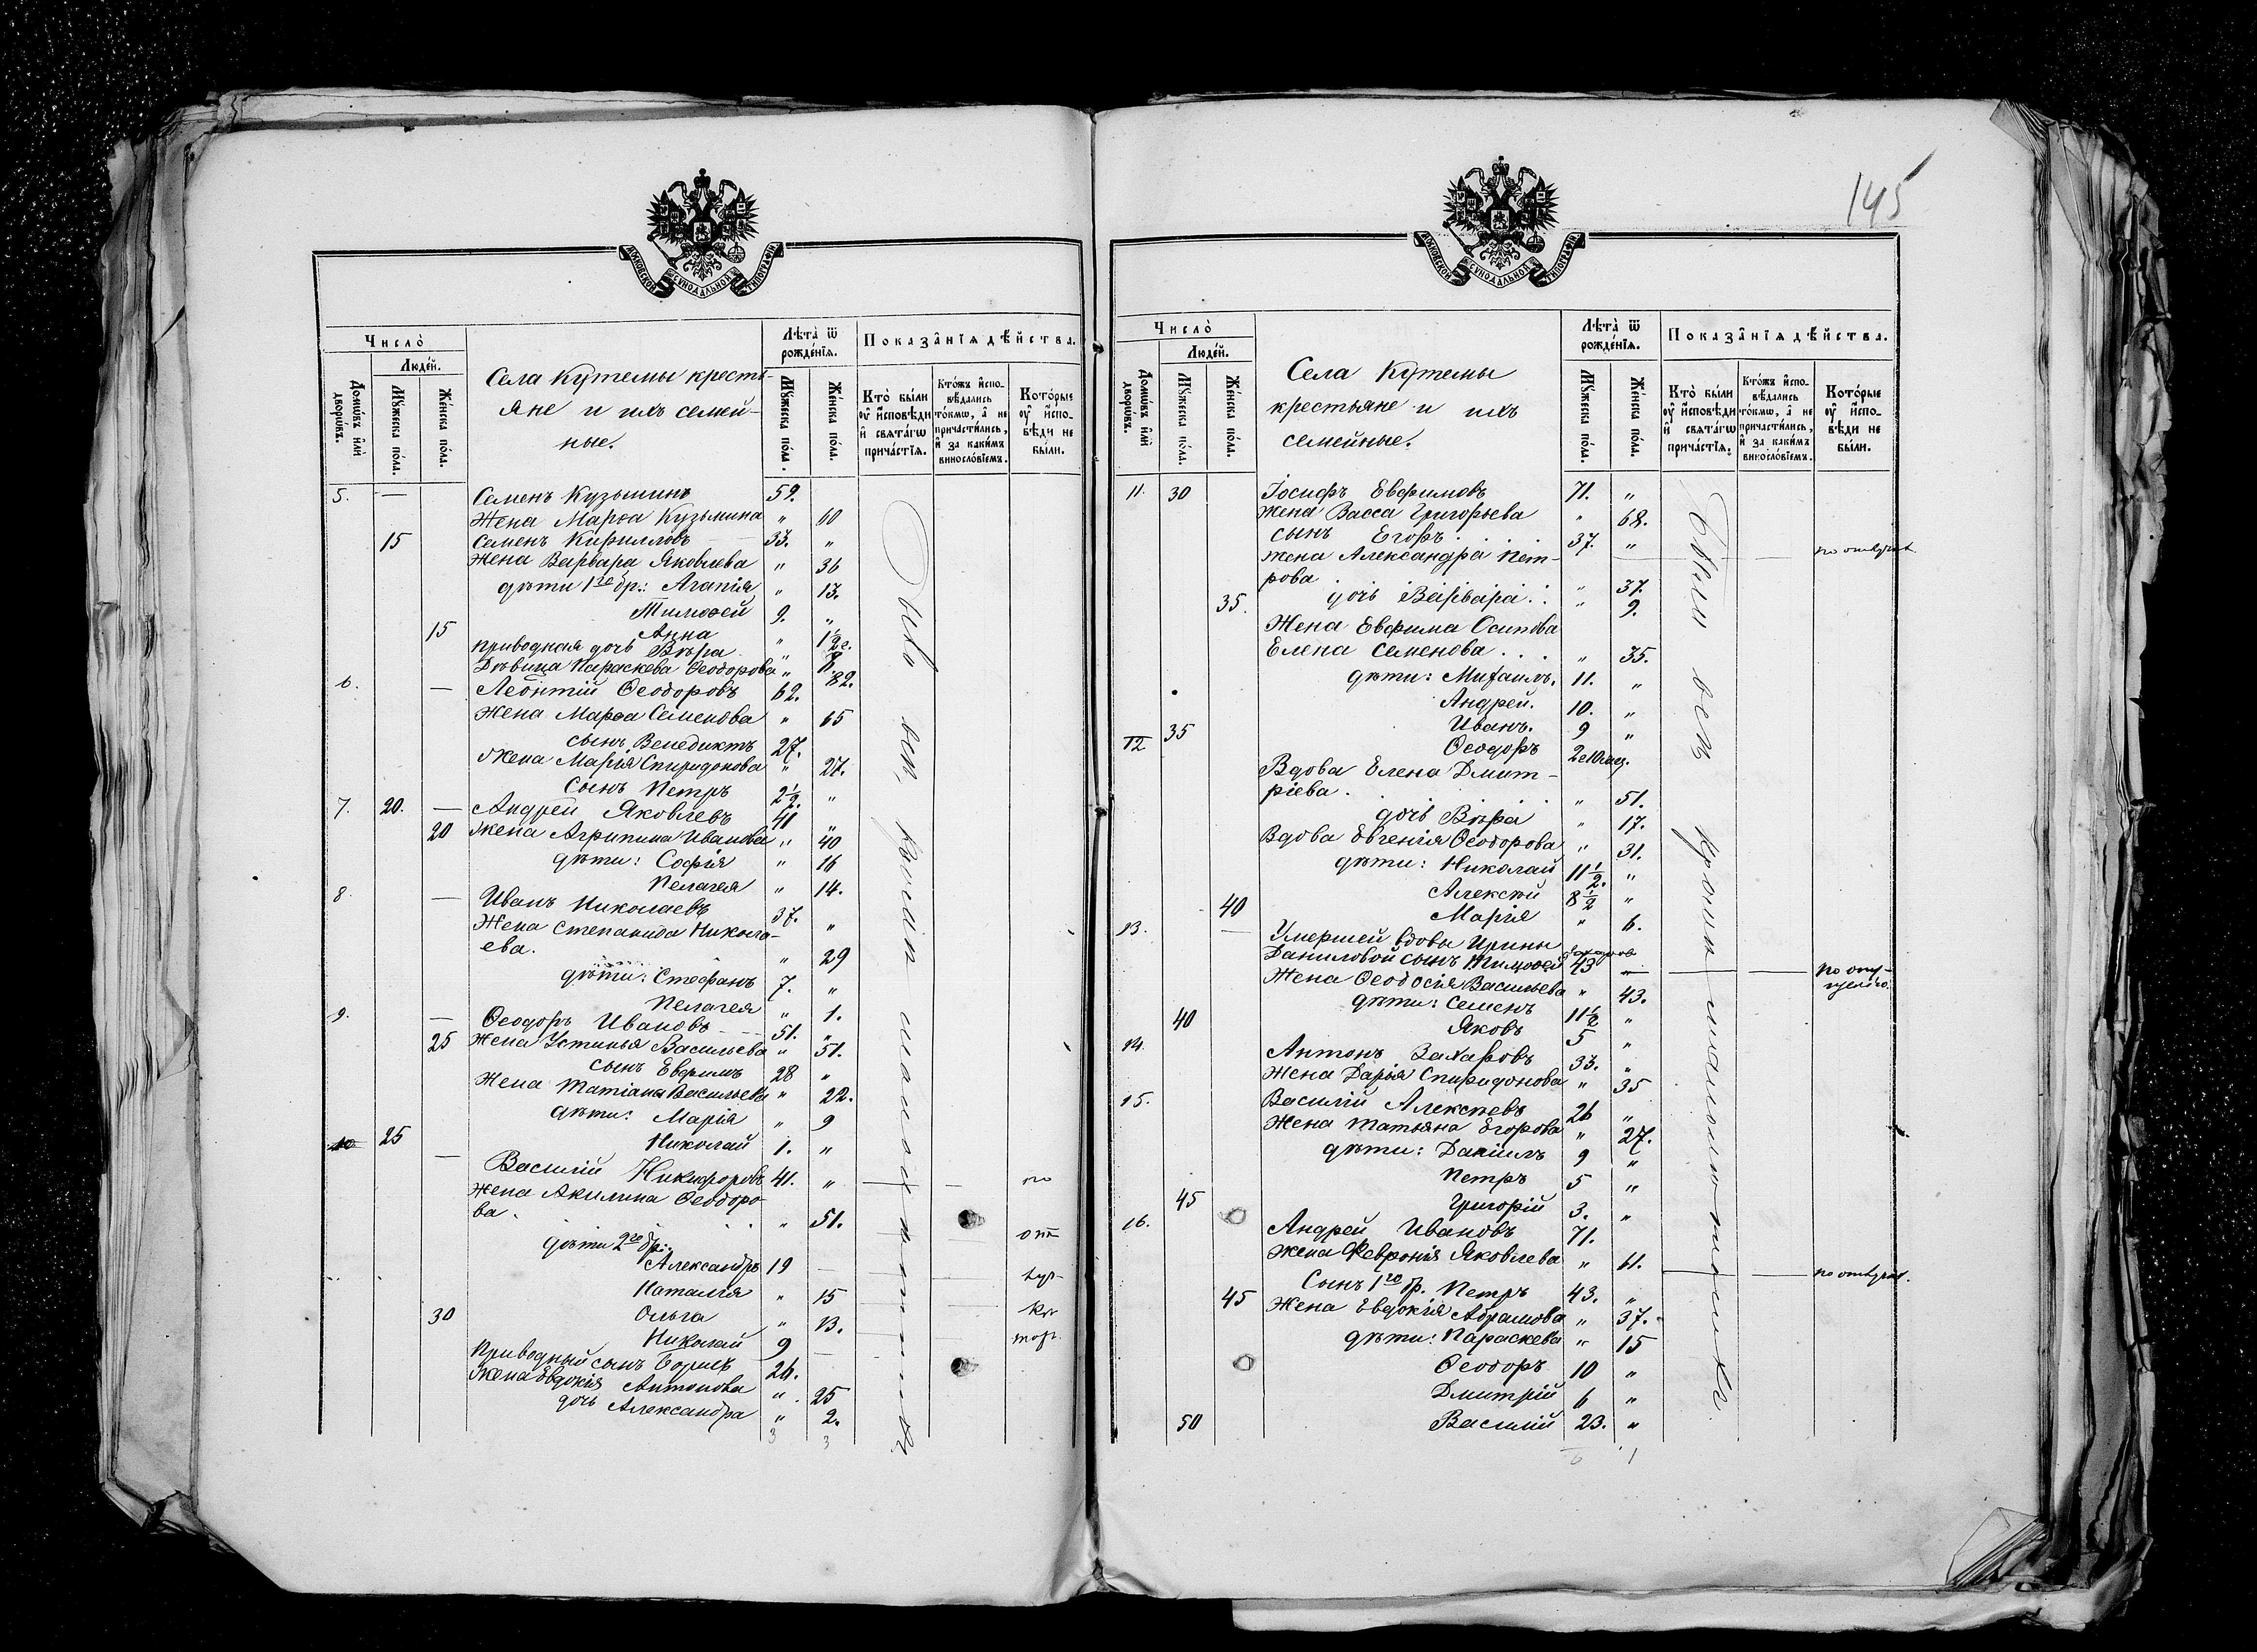 145
МОСКОВСКОЙ СѴНОДАЛЬНОЙ ТИПОГРАФІИ
Число̀
Люде́й.
Домѡ́въ и҆лѝ дворѡ́въ.
Мꙋ́жеска по́ла.
Же́нска по́ла.
Села Кутемы кресть-
яне и ихъ семей-
ные.
Лѣта̀ ѿ рожде́нїѧ.
Мꙋ́жеска по́ла.
Же́нска по́ла.
Показа̂нїѧ дѣ́йства.
Кто̀ были ᲂу҆ и҆сповѣди и҆ свѧта́гѡ прича́стїѧ.
Кто́жъ и҆спо-вѣдались то́кмѡ, а҆ не причасти́лись, и҆ за каки́мъ виносло́вїемъ.
Кото́рые ᲂу҆ и҆спо-вѣди не бы́ли.
5. — Семенъ Кузьминъ 59.
Жена Марѳа Кузьмина " 60
15 Семенъ Кирилловъ 33. "
Жена Варвара Яковлева " 36
дѣти 1го бр.: Агапія " 13.
Тимоѳей 9. "
15 Анна " 1½
Приводная дочь Вѣра "
Дѣвица Параскева Ѳеодорова " 82.
6. — Леонтій Ѳеодоровъ 62.
Жена Марѳа Семенова " 65
сынъ Венедиктъ 27.
Жена Марія Спиридонова " 27.
Сынъ Петръ 2½. "
7. 20. — Андрей Яковлевъ 41 "
20 Жена Агрипина Иванова " 40
дѣти: Софія " 16
Пелагея " 14.
8 — Иванъ Николаевъ 37. "
Жена Степанида Никола-
ева. " 29
дѣти: Стефанъ 7. "
Пелагея " 1.
9. — Ѳеодоръ Ивановъ 51. "
25 Жена Устинья Васильева " 51.
сынъ Евфимъ 28 "
Жена Татіана Васильева " 22.
дѣти: Марія " 9
10 25 Николай 1. "
— Василій Никифоровъ 41. " по
Жена Акилина Ѳеодоро-
ва. " 51.
дѣти 2го бр.:
Александръ 19
Наталія " 15
30 Ольга " 13.
Николай 9
Приводный сынъ Борисъ 26.
Жена Евдокія Антонова " 25
дочь Александра " 2.
3 3
МОСКОВСКОЙ СѴНОДАЛЬНОЙ ТИПОГРАФІИ
Число̀
Люде́й.
Домѡ́въ и҆лѝ дворѡ́въ.
Мꙋ́жеска по́ла.
Же́нска по́ла.
Села Кутемы
крестьяне и ихъ
семейные.
Лѣта̀ ѿ рожде́нїѧ.
Мꙋ́жеска по́ла.
Же́нска по́ла.
Показа̂нїѧ дѣ́йства.
Кто̀ были ᲂу҆ и҆сповѣди и҆ свѧта́гѡ прича́стїѧ.
Кто́жъ и҆спо-вѣдались то́кмѡ, а҆ не причасти́лись, и҆ за каки́мъ виносло́вїемъ.
Кото́рые ᲂу҆ и҆спо-вѣди не бы́ли.
11. 30 Іосифъ Евфимовъ 71. "
Жена Васса Григорьева " 68.
сынъ Егоръ 37. "
Жена Александра Пет-
рова " 37.
35. дочь Варвара " 9.
Жена Евфима Осипова
Елена Семенова " 35.
дѣти: Михаилъ. 11. "
Андрей. 10. "
35 Иванъ. 9 "
12 Ѳеодоръ
Вдова Елена Дмит-
ріева. " 51.
дочь Вѣра " 17.
Вдова Евгенія Ѳеодорова " 31.
дѣти: Николай 11½. "
Алексѣй 8½ "
40 Марія " 6.
13. — Умершей вдовы Ирины
Даниловой сынъ Тимоѳей 43
Жена Ѳеодосія Васильева " 43.
дѣти: Семенъ 11½ "
40 Яковъ 5 "
14. Антонъ Захаровъ 33. "
Жена Дарья Спиридонова " 35
15. Василій Алексѣевъ 26 "
Жена Татьяна Егорова " 27.
дѣти: Даніилъ 9 "
Петръ 5 "
45 Григорій 3. "
16. Андрей Ивановъ 71.
Жена Февронія Яковлева " 61.
Сынъ 1го бр. Петръ 43. "
45 Жена Евдокія Абрамова " 37.
дѣти: Параскева " 15
Ѳеодоръ 10 "
Дмитрій 6 "
50 Василій 23. "
6 1